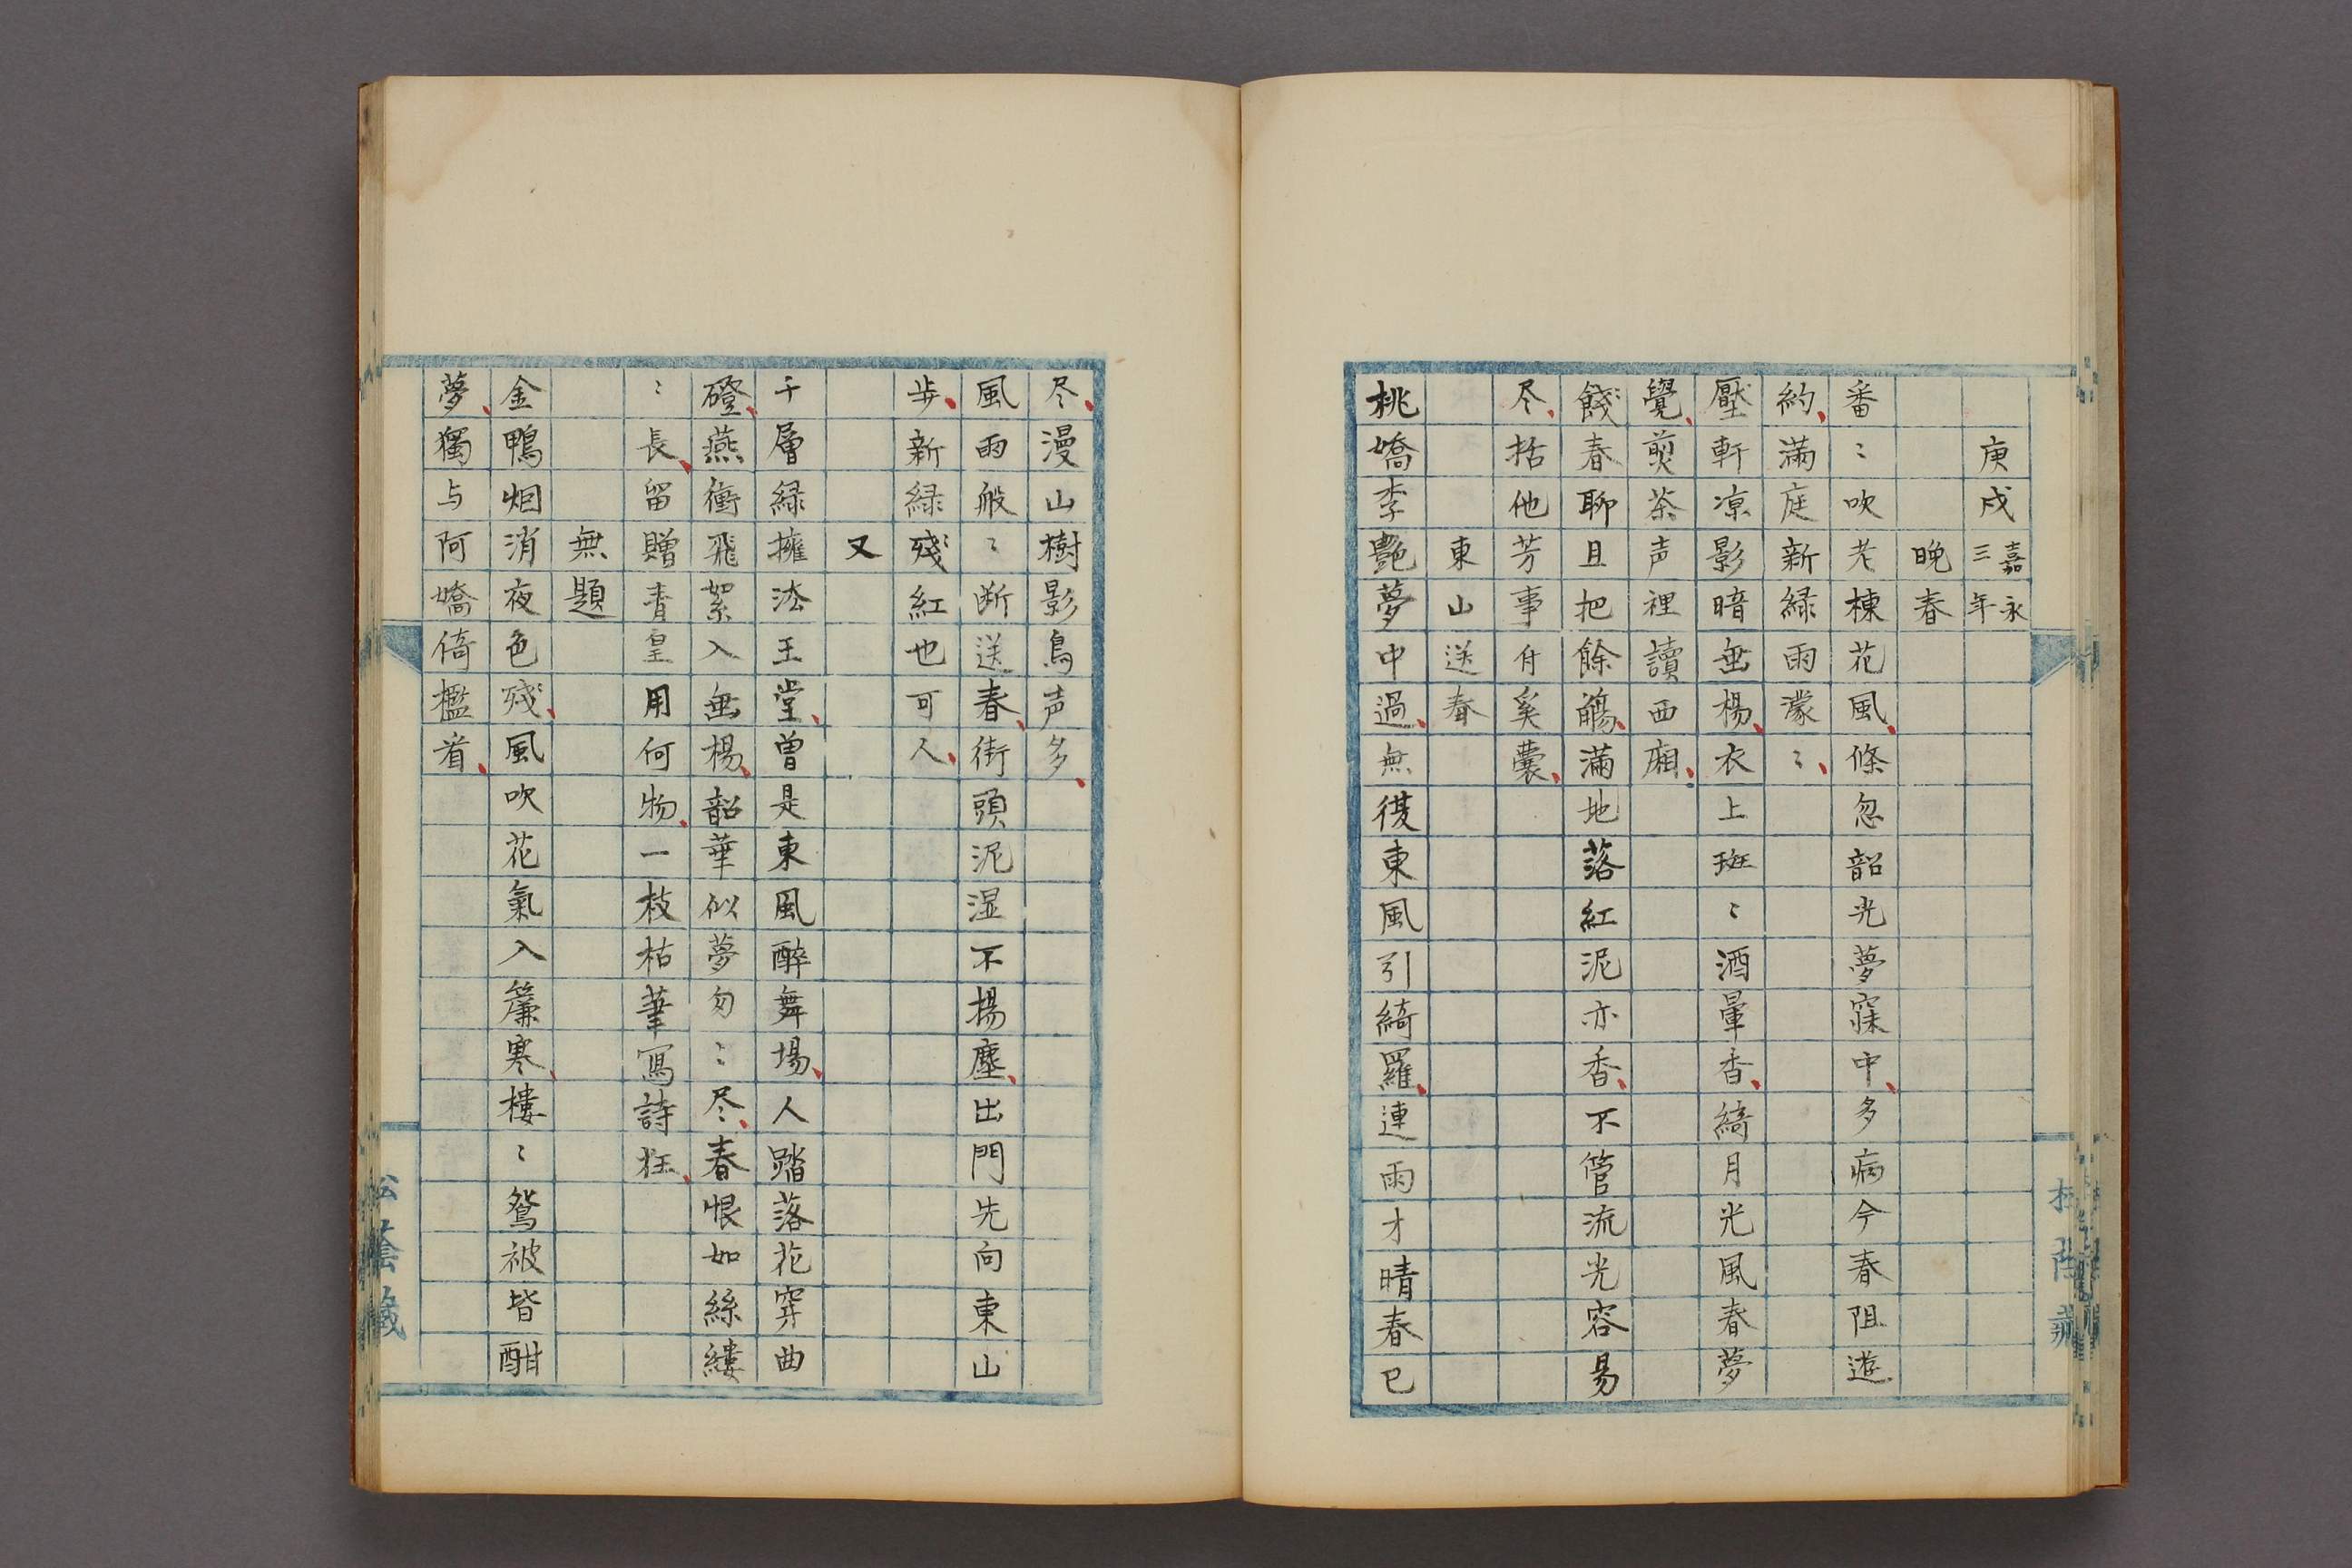 庚戌嘉永三年
晩春
番〻吹老楝花風條忽韶光夢寐中多病今春阻遊
約満庭新緑雨濛〻
壓軒凉影暗垂楊衣上斑〻酒暈香綺月光風春夢
覺煎茶声裡讀西廂
餞春聊且把餘觴満地落紅泥亦香不管流光容易
尽括他芳事付奚囊
東山送春
桃嬌李艶夢中過無復東風引綺羅連雨才晴春已
尽漫山樹影鳥声多
風雨般〻断送春街頭泥湿不揚塵出門先向東山
歩新緑残紅也可人
又
千層緑擁法王堂曽是東風醉舞場人踏落花穿曲
磴燕衝飛絮入垂楊韶華似夢匆〻尽春恨如絲縷
〻長留贈青皇用何物一枝枯筆寫詩狂
無題
金鴨烟消夜色残風吹花氣入簾寒樓〻鴛被皆酣
夢獨与阿嬌倚檻看
松蔭藏